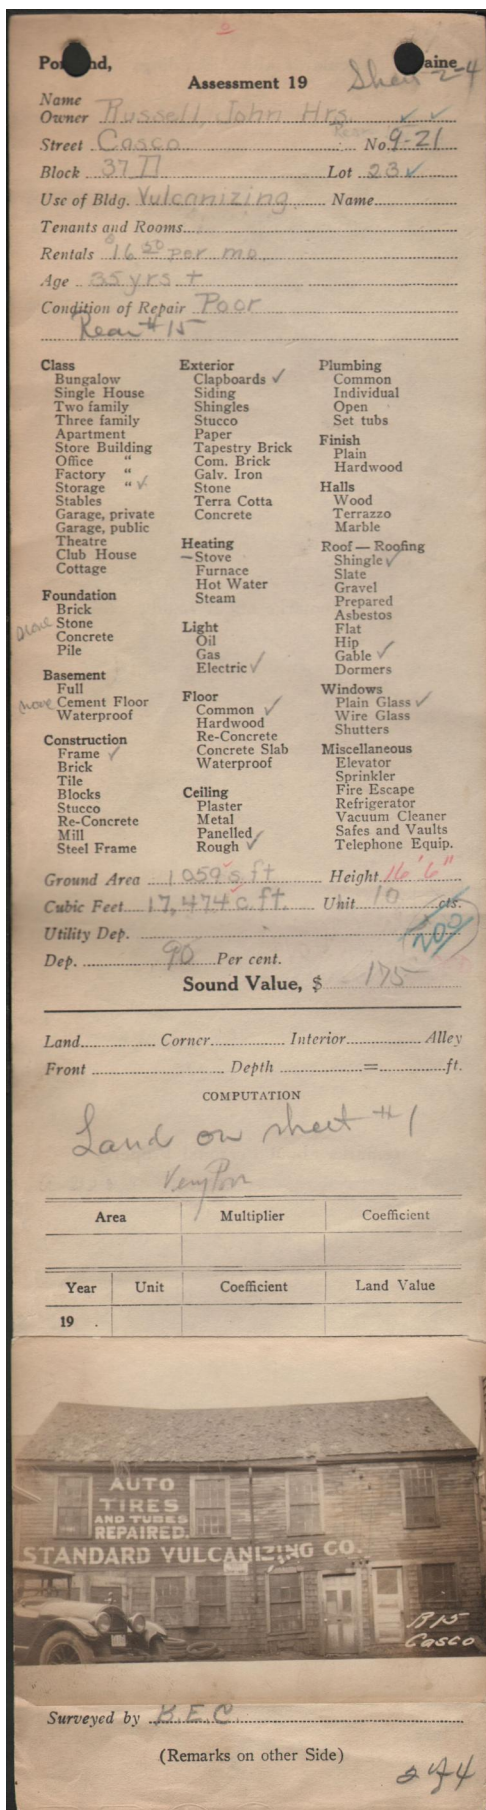 5
Portland, Maine
Assessment 19 Sheet 2-4
Name
Owner Russell, John Hrs.
Rear
Street Casco No. 9-21
Block 37 D Lot 23
Use of Bldg. Vulcanizing Name
Tenants and Rooms
Rentals $16.50 per mo.
Age 35 yrs +
Condition of Repair Poor
Rear #15
Class
Bungalow
Single House
Two family
Three family
Apartment
Store Building
Office "
Factory "
Storage " ✓
Stables
Garage, private
Garage, public
Theatre
Club House
Cottage
Foundation
Brick
Stone
Concrete
Pile
Basement
Full
none Cement Floor
Waterproof
Construction
Frame ✓
Brick
Tile
Blocks
Stucco
Re-Concrete
Mill
Steel Frame
Exterior
Clapboards ✓
Siding
Shingles
Stucco
Paper
Tapestry Brick
Com. Brick
Galv. Iron
Stone
Terra Cotta
Concrete
Heating
—Stove
Furnace
Hot Water
Steam
Light
Oil
Gas
Electric ✓
Floor
Common ✓
Hardwood
Re-Concrete
Concrete Slab
Waterproof
Ceiling
Plaster
Metal
Panelled
Rough ✓
Plumbing
Common
Individual
Open
Set tubs
Finish
Plain
Hardwood
Halls
Wood
Terrazzo
Marble
Roof — Roofing
Shingle ✓
Slate
Gravel
Prepared
Asbestos
Flat
Hip
Gable ✓
Dormers
Windows
Plain Glass ✓
Wire Glass
Shutters
Miscellaneous
Elevator
Sprinkler
Fire Escape
Refrigerator
Vacuum Cleaner
Safes and Vaults
Telephone Equip.
Ground Area 1059 s. ft Height 16' 6"
Cubic Feet 17,474 c. ft. Unit 10 cts.
Utility Dep. 200
Dep. 90 Per cent.
Sound Value, $ 175
Land Corner Interior Alley
Front Depth = ft.
COMPUTATION
Land on sheet #1
Very Poor
Area Multiplier Coefficient
Year Unit Coefficient Land Value
19 .
AUTO
TIRES
AND TUBES
REPAIRED.
STANDARD VULCANIZING CO.
R15
Casco
Surveyed by B.E.C.
(Remarks on other Side)
2 of 4